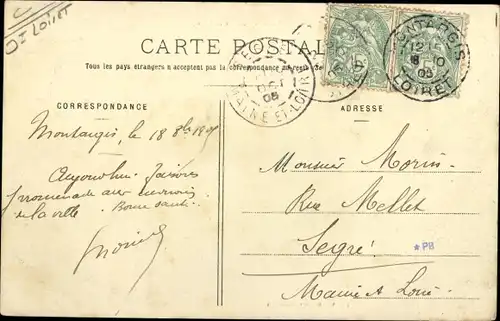 Dt Loiret
CARTE POSTALE
Tous les pays étrangers n'acceptent pas la correspondance au recto
CORRESPONDANCE
ADRESSE
MONTARGIS
LOIRET
MAINE-ET-LOIRE
OCT
05
Montargis, le 18 8bre 1905
Aujourd'hui faisons
promenade aux environs
de la ville. Bonne santé.
Monsieur Morin
Rue Mellet
Segré
*PB
Maine & Loire